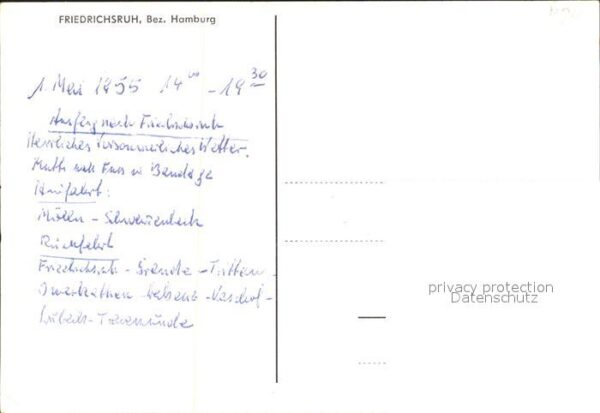 FRIEDRICHSRUH, Bez. Hamburg
1. Mai 1955 14⁰⁰ - 19³⁰
Ausflug nach Friedrichsruh
Herrliches Wetter.
Mutti Fuss in Bandage
Hinfahrt:
Mölln - Schwarzenbek
Rückfahrt
Friedrichsruh - Grande - Trittau -
Lübeck - Travemünde
privacy protection
Datenschutz